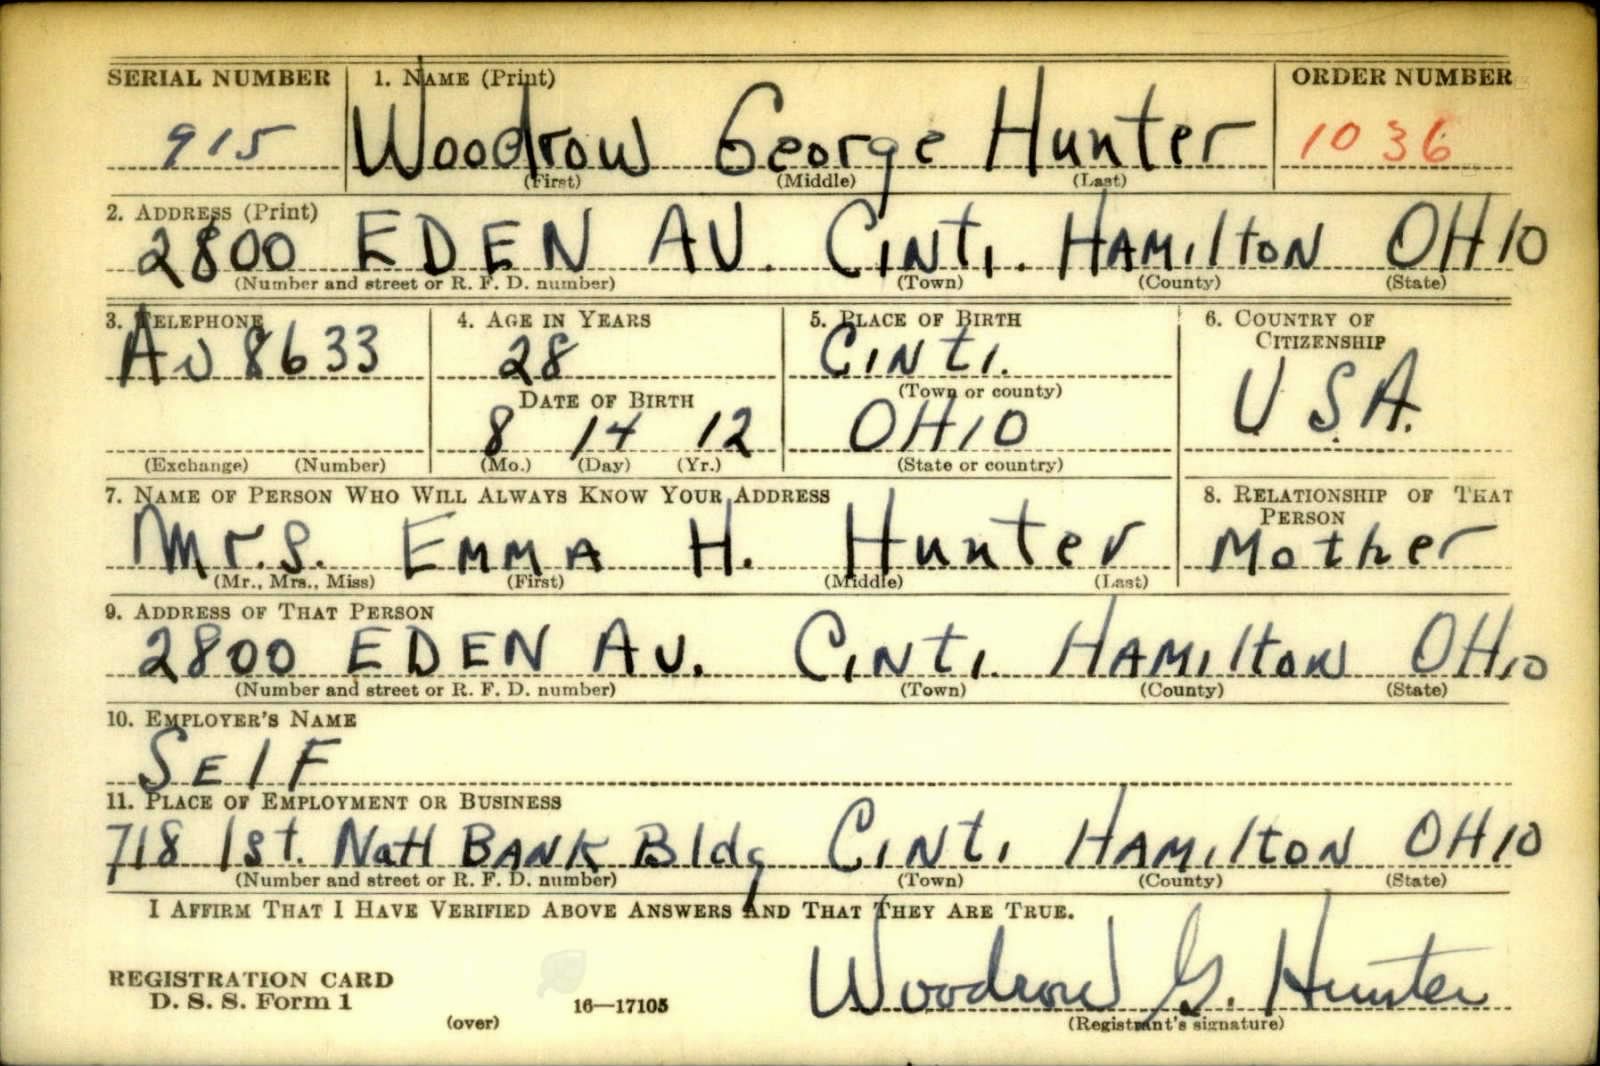 SERIAL NUMBER 1. NAME (Print) ORDER NUMBER
915 Woodrow George Hunter 1036
(First) (Middle) (Last)
2. ADDRESS (Print)
2800 EDEN AV. Cinti. HAMilton OHIO
(Number and street or R. F. D. number) (Town) (County) (State)
3. TELEPHONE 4. AGE IN YEARS 5. PLACE OF BIRTH 6. COUNTRY OF
CITIZENSHIP
Av 8633 28 Cinti. U.S.A.
(Town or county)
DATE OF BIRTH
8 14 12 OHIO
(Exchange) (Number) (Mo.) (Day) (Yr.) (State or country)
7. NAME OF PERSON WHO WILL ALWAYS KNOW YOUR ADDRESS 8. RELATIONSHIP OF THAT
PERSON
Mrs. EMMA H. Hunter Mother
(Mr., Mrs., Miss) (First) (Middle) (Last)
9. ADDRESS OF THAT PERSON
2800 EDEN Av. Cinti. HAMilton OHio
(Number and street or R. F. D. number) (Town) (County) (State)
10. EMPLOYER'S NAME
SElF
11. PLACE OF EMPLOYMENT OR BUSINESS
718 1st. Natl BANK Bldg Cinti HAMilton OHIO
(Number and street or R. F. D. number) (Town) (County) (State)
I AFFIRM THAT I HAVE VERIFIED ABOVE ANSWERS AND THAT THEY ARE TRUE.
Woodrow G. Hunter
REGISTRATION CARD
D. S. S. Form 1 16—17105
(over) (Registrant's signature)